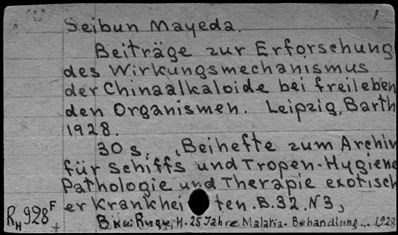 Seibun Mayeda.
Beiträge zur Erforschung
des Wirkungsmechanismus
der Chinaalkaloide bei freileben
den Organismen. Leipzig, Barth
1928.
30 s., „Beihefte zum Archiv
für Schiffs und Tropen-Hygiene
Pathologie und Therapie exotisch
er Krankhei ten. B. 32. N3,
RH 928F
H. 25 Jahre Malaria-Behandlung... 1928